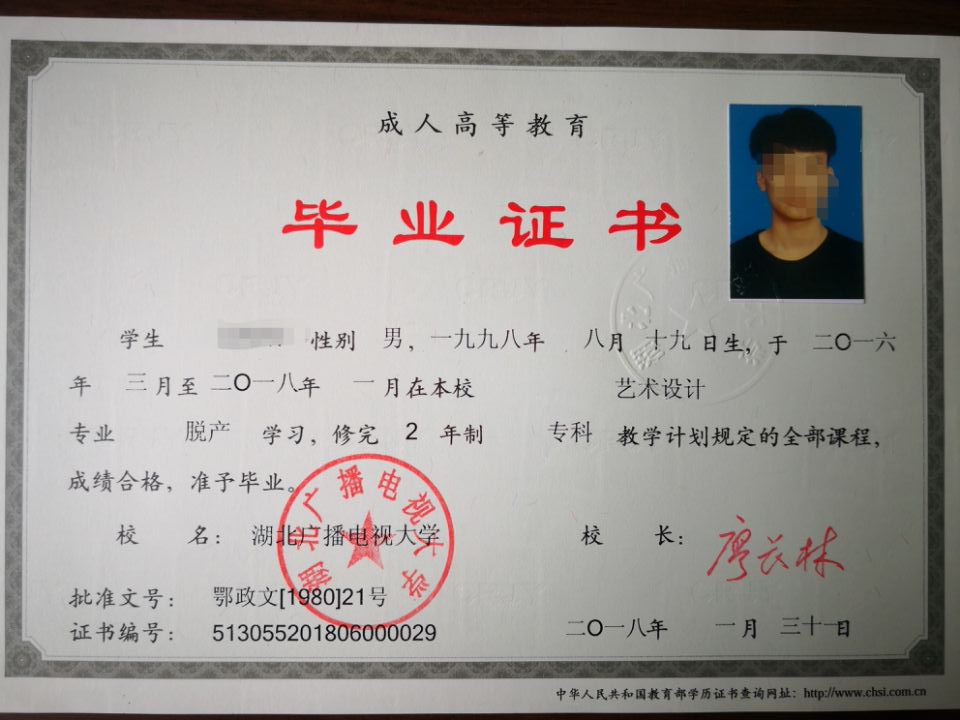 成人高等教育
毕业证书
学生 性别 男，一九九八年 八月 十九日生，于 二〇一六
年 三月至 二〇一八年 一月在本校 艺术设计
专业 脱产 学习，修完 2 年制 专科 教学计划规定的全部课程，
成绩合格，准予毕业。
校 名： 湖北广播电视大学 校 长： 廖长林
湖北广播电视大学
批准文号： 鄂政文[1980]21号
证书编号： 513055201806000029 二〇一八年 一月 三十一日
中华人民共和国教育部学历证书查询网址：http://www.chsi.com.cn